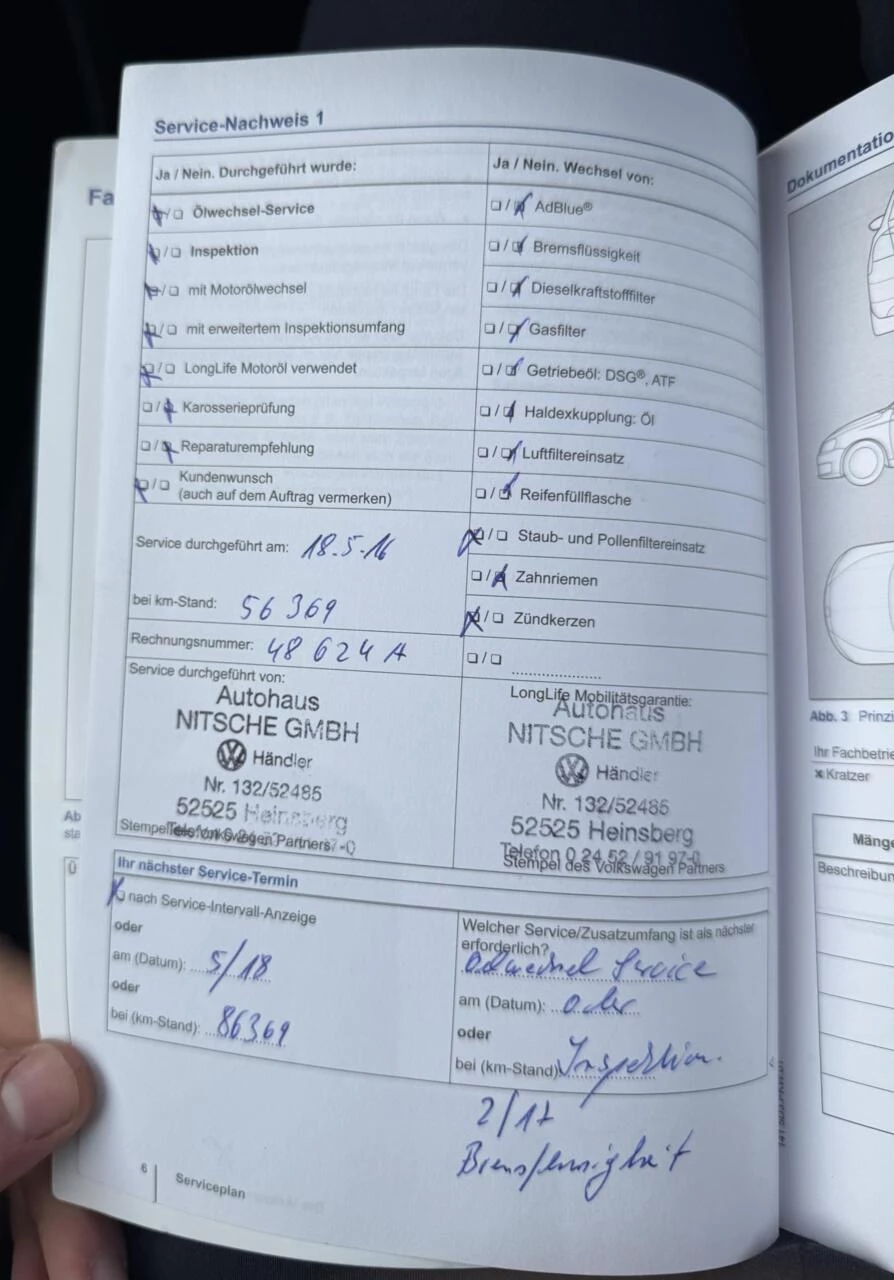 Service-Nachweis 1
Ja / Nein. Durchgeführt wurde:
Ölwechsel-Service
Inspektion
mit Motorölwechsel
mit erweitertem Inspektionsumfang
LongLife Motoröl verwendet
Karosserieprüfung
Reparaturempfehlung
Kundenwunsch
(auch auf dem Auftrag vermerken)
Service durchgeführt am: 18.5.16
bei km-Stand: 56 369
Rechnungsnummer: 48 624 A
Service durchgeführt von:
Autohaus
NITSCHE GMBH
Händler
Nr. 132/52485
52525 Heinsberg
Ja / Nein. Wechsel von:
AdBlue®
Bremsflüssigkeit
Dieselkraftstofffilter
Gasfilter
Getriebeöl: DSG®, ATF
Haldexkupplung: Öl
Luftfiltereinsatz
Reifenfüllflasche
Staub- und Pollenfiltereinsatz
Zahnriemen
Zündkerzen
LongLife Mobilitätsgarantie:
Autohaus
NITSCHE GMBH
Händler
Nr. 132/52485
52525 Heinsberg
Telefon 0 24 52 / 91 97-0
Stempel des Volkswagen Partners
Ihr nächster Service-Termin
nach Service-Intervall-Anzeige
oder
am (Datum): 5/18
oder
bei (km-Stand): 86369
Welcher Service/Zusatzumfang ist als nächster
erforderlich?
Service
am (Datum): oder
oder
bei (km-Stand) Inspektion.
2/17
6
Serviceplan
Fa
Ab
sta
Ü
Dokumentatio
Abb. 3 Prinzi
Ihr Fachbetrie
x Kratzer
Mänge
Beschreibun